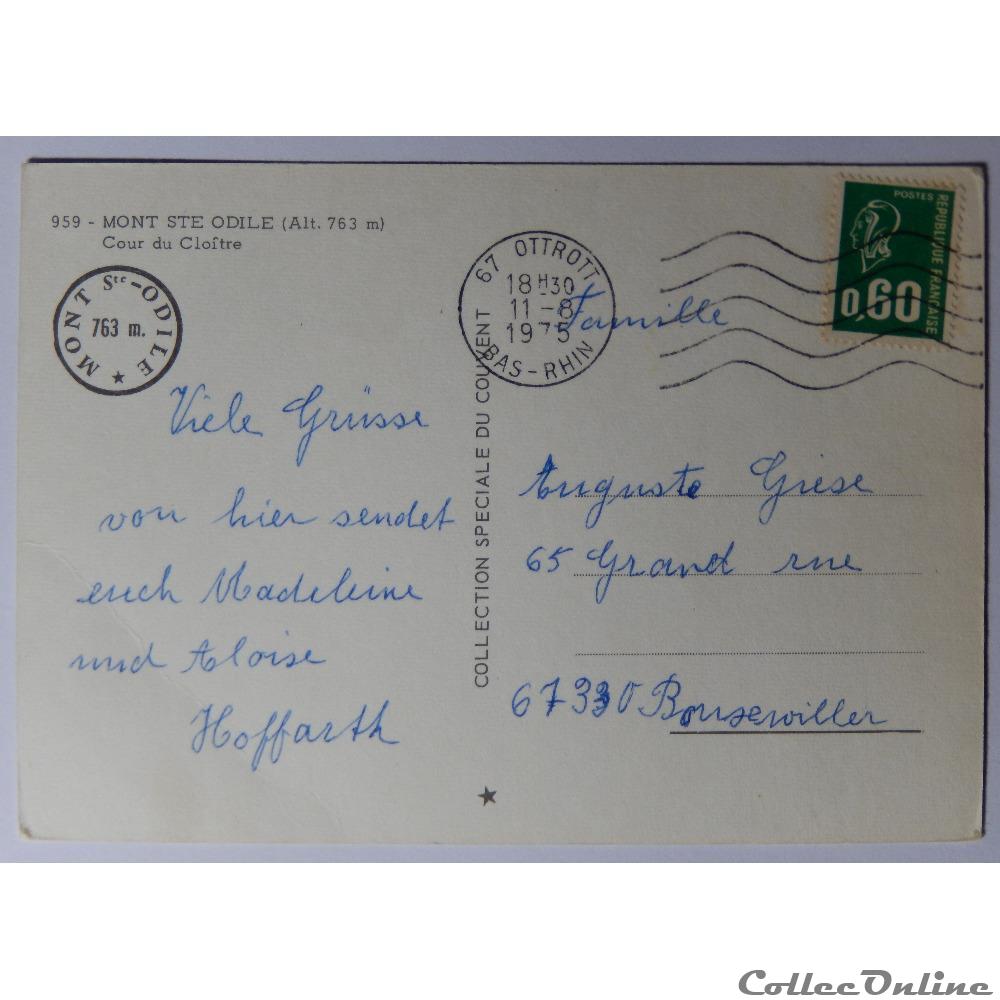 959 - MONT STE ODILE (Alt. 763 m)
Cour du Cloître
MONT Ste-ODILE
763 m.
Viele Grüsse
von hier sendet
euch Madeleine
und Aloise
Hoffarth
COLLECTION SPECIALE DU COUVENT
67 OTTROTT
18H30
11-8
1975
BAS-RHIN
POSTES
REPUBLIQUE FRANCAISE
0,60
Famille
Auguste Giese
65 Grand rue
67330 Bouxwiller
CollecOnline